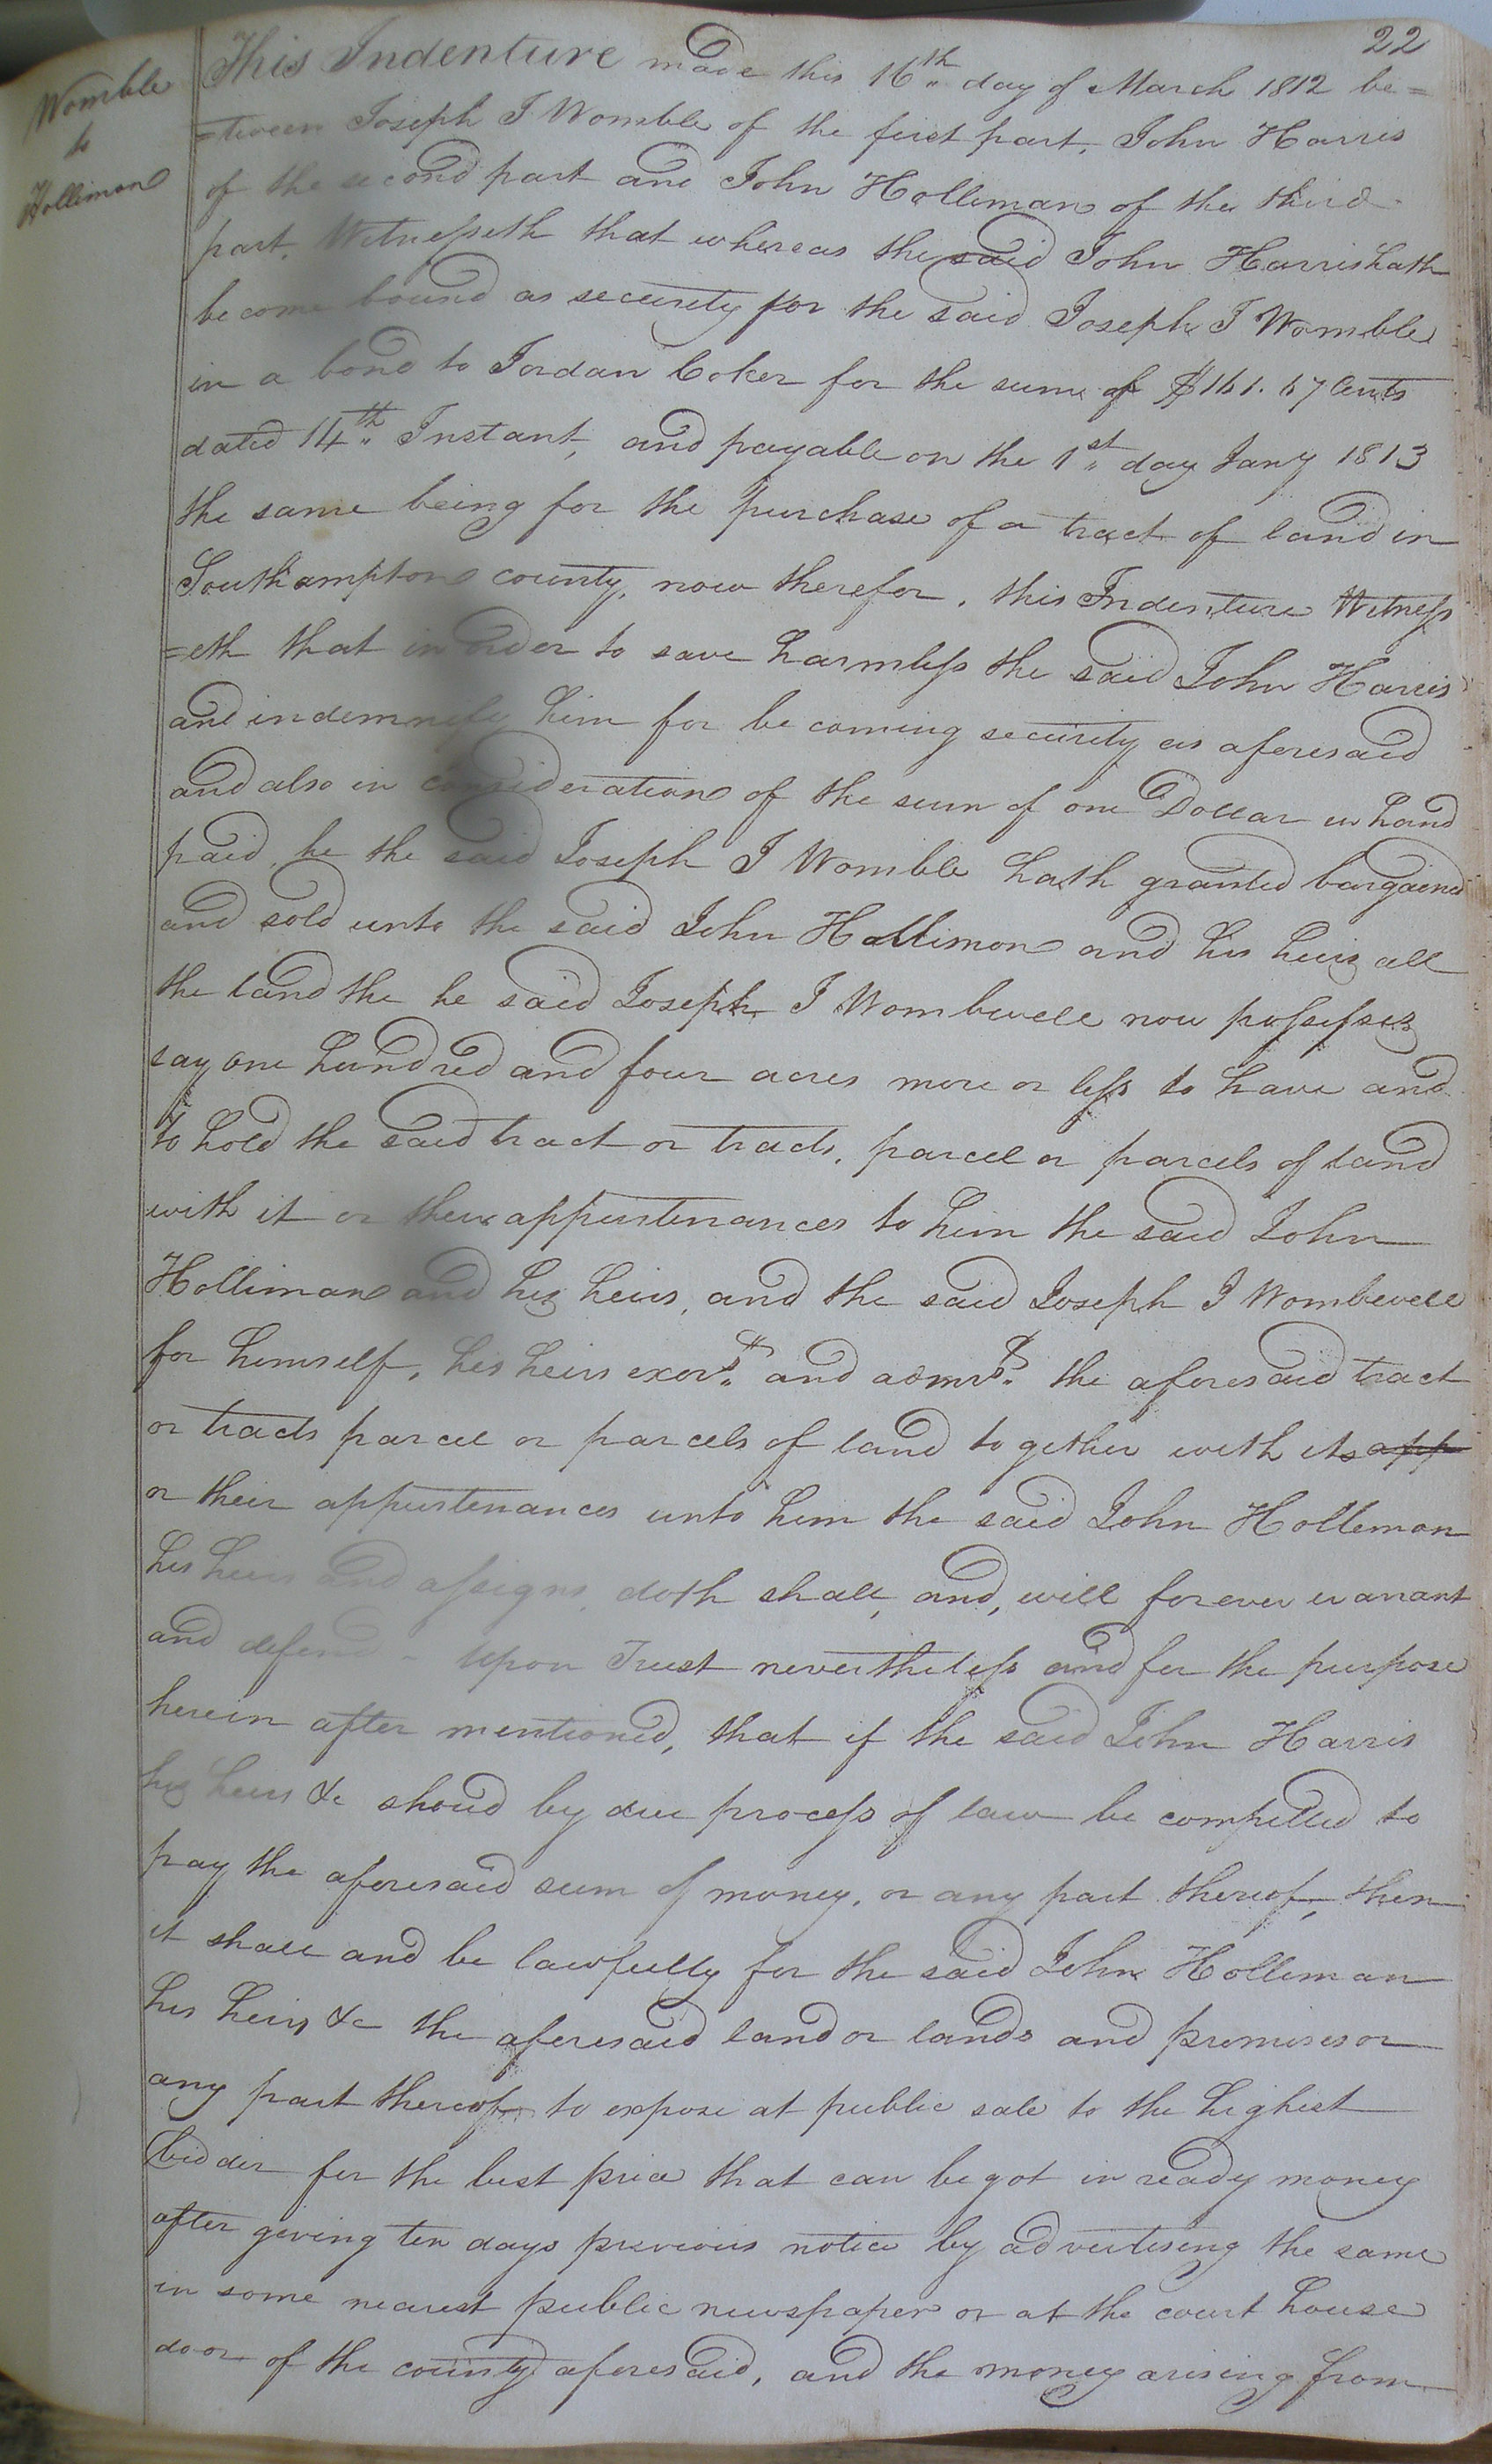 22
Womble
to
Holliman
This Indenture made this 16th day of March 1812 be=
=tween Joseph J Womble of the first part, John Harris
of the second part and John Holliman of the third
part, Witnesseth that whereas the said John Harris hath
become bound as security for the said Joseph J Womble
in a bond to Jordan Coker for the sum of Cents
dated 14th Instant, and payable on the 1st day Jany 1813
the same being for the purchase of a tract of land in
Southampton county, now therefor, this Indenture Witness
=eth that in order to save harmless the said John Harris
and indemnify him for becoming security as aforesaid
and also in consideration of the sum of one Dollar in hand
paid, he the said Joseph J Womble hath granted bargained
and sold unto the said John Hollimon and his heirs all
the land the he said Joseph J Wombwell now possesses
say one hundred and four acres more or less to have and
to hold the said tract or tracts, parcel or parcels of land
with it or their appurtenances to him the said John
Holliman and his heirs, and the said Joseph J Wombwell
for himself, his heirs exors. and admrs. the aforesaid tract
or tracts parcel or parcels of land together with its app
or their appurtenances unto him the said John Holleman
his heirs and assigns, doth shall, and, will forever warrant
and defend - Upon Trust nevertheless and for the purpose
herein after mentioned, that if the said John Harris
his heirs &c shoud by due process of law be compelled to
pay the aforesaid sum of money, or any part thereof, then
it shall and be lawfully for the said John Holliman
his heirs &c the aforesaid land or lands and premises or
any part thereof to expose at public sale to the highest
bidder for the best price that can be got in ready money
after giving ten days previous notice by advertising the same
in some nearest public newspaper or at the court house
door of the county aforesaid, and the money arising from